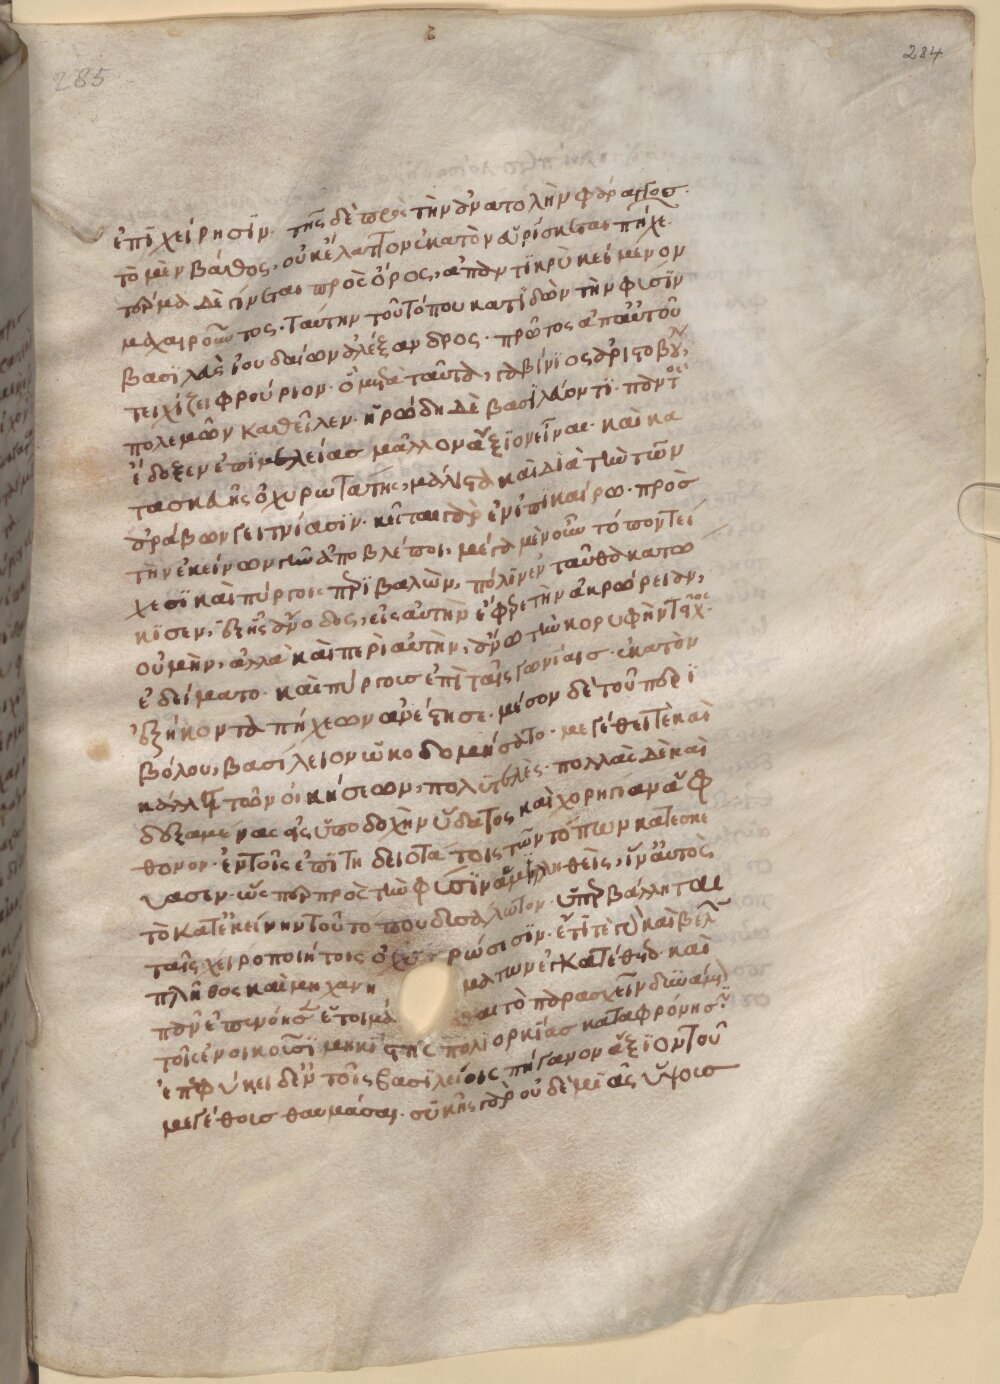 285
284
ἐπιχείρησιν. τῆς δὲ πρὸς τὴν ἀνατολὴν φάραγγος.
τὸ μὲν βάθος, οὐκ ἔλαττον ἑκατὸν εὑρίσκεται πήχε.
τέρμα δὲ γίνεται πρὸς ὄρος, ἀπαντικρὺ κείμενον
μαχαιροῦντος. ταύτην τοῦ τόπου κατιδὼν τὴν φύσιν
βασιλεὺς ἰουδαίων ἀλέξανδρος. πρῶτος ἐπ αὐτοῦ
τειχίζει φρούριον. ὃ μετὰ ταῦτα, γαβίνιος ἀριστοβούλῳ
πολεμῶν καθεῖλεν. ἡρώδῃ δὲ βασιλεύοντι. παντὸς
ἔδοξεν ἐπιμελείας μᾶλλον ἄξιον εἶναι. καὶ κα
τασκευῆς ὀχυρωτάτης, μάλιστα καὶ διὰ τὴν τῶν
ἀράβων γειτνίασιν. κεῖται γὰρ ἐν ἐπικαίρω. πρὸς
τὴν ἐκείνων γῆν ἀποβλέπον, μέγα μὲν οὖν τόπον τεί
χεσι καὶ πύργοις περιβαλὼν, πόλιν ἐνταῦθα κατω
κισεν, ἐξ ἧς ἄνοδος, εἰς αὐτὴν ἔφερε τὴν ἀκρώρειαν,
οὐ μὴν, ἀλλὰ καὶ περὶ αὐτὴν, ἄνω τὴν κορυφὴν τεῖχος.
ἐδείματο. καὶ πύργους ἐπὶ ταῖς γωνίαις. ἑκατὸν
ἑξήκοντα πήχεων ἀνέστησε. μέσον δὲ τοῦ περι
βόλου, βασίλειον ὠκοδομήσατο. μεγέθει τὲ καὶ
κάλλει τῶν οἰκήσεων, πολυτελὲς. πολλὰς δὲ καὶ
δεξαμενὰς εἰς ὑποδοχὴν ὕδατος καὶ χορηγίαν ἄφ
θονον. ἐν τοῖς ἐπιτηδειοτάτοις τῶν τόπων κατεσκε
ύασεν. ὥσπερ πρὸς τὴν φύσιν ἁμιλληθεὶς, ἵν αὐτὸς
τὸ κατ ἐκείνην τοῦ τόπου δυσάλωτον ὑπερβάλληται
ταῖς χειροποιήτοις ὀχυρώσεσιν. ἔτι τὲ γὰρ καὶ βελῶν
πλῆθος καὶ μηχανημάτων ἐγκατέθετο. καὶ
πᾶν ἐπενόησεν ἑτοιμάσασθαι τὸ παρασχεῖν δυνάμενον
τοῖς ἐνοικοῦσι μηκίστης πολιορκίας καταφρόνησιν
ἐπεφύκει δ ἐν τοῖς βασιλείοις πήγανον ἄξιον τοῦ
μεγέθους θαυμάσαι. συκῆς γὰρ οὐδεμιᾶς ὕψους